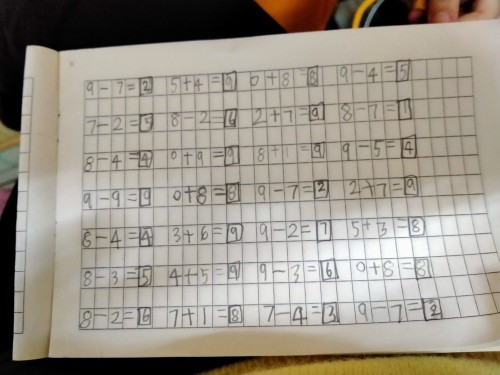 9-7=2 5+4=9 0+8=8 9-4=5
7-2=5 8-2=6 2+7=9 8-7=1
8-4=4 0+9=9 8+1=9 9-5=4
9-9=9 0+8=8 9-7=2 2+7=9
8-4=4 3+6=9 9-2=7 5+3=8
8-3=5 4+5=9 9-3=6 0+8=8
8-2=6 7+1=8 7-4=3 9-7=2